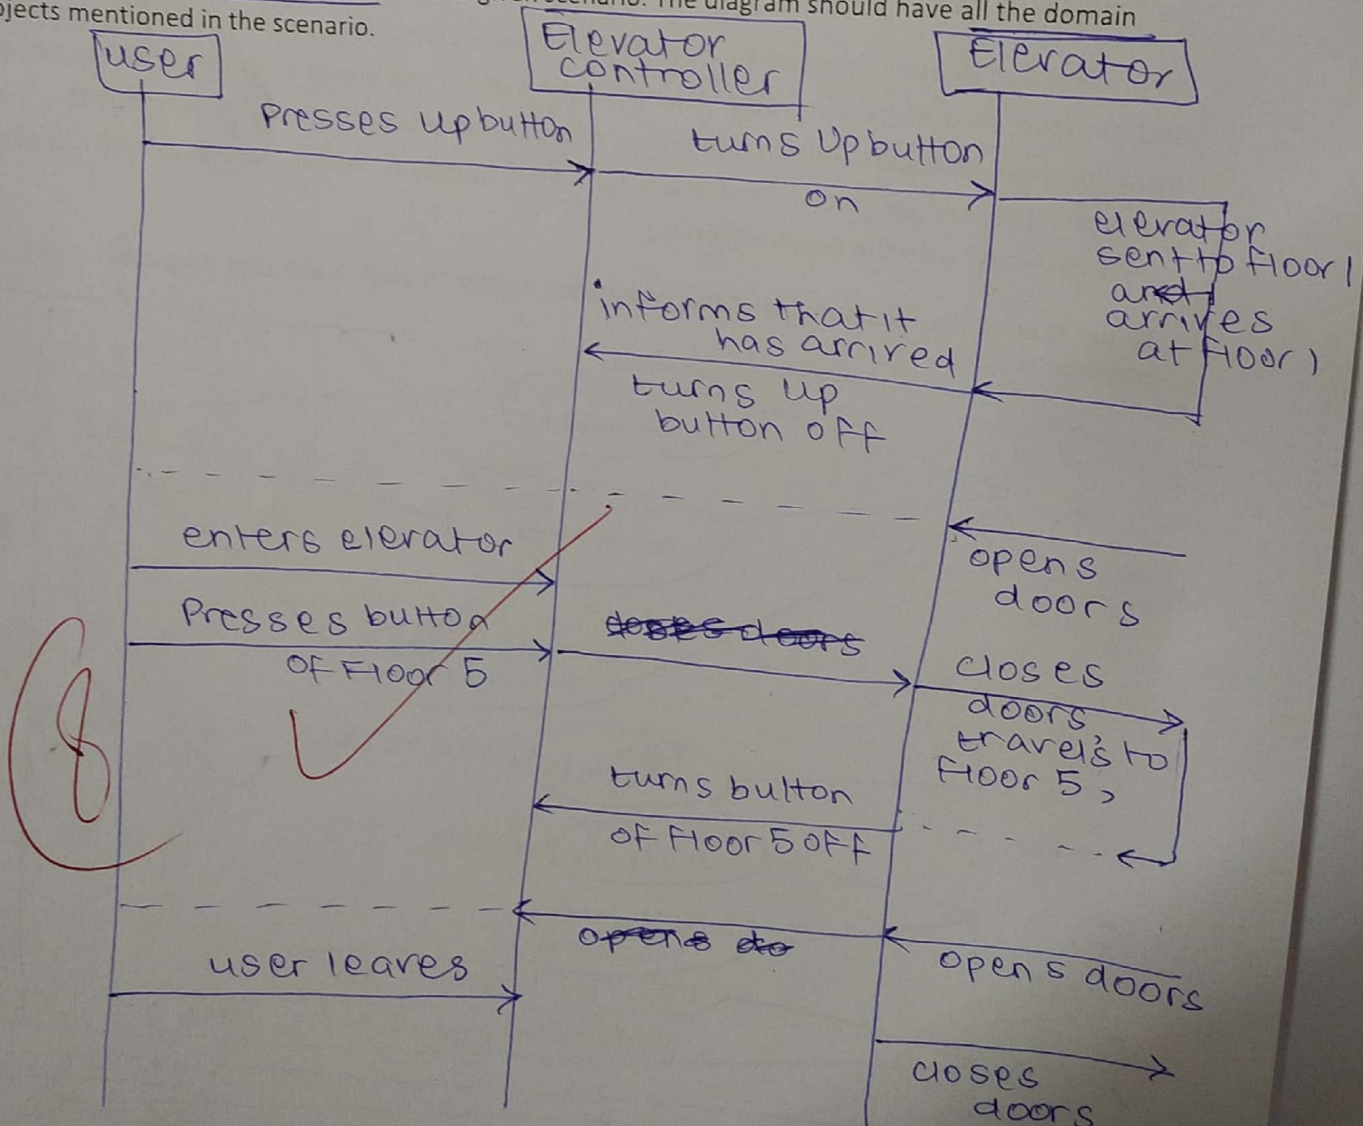 diagram should have all the domain
jects mentioned in the scenario.
user
Elevator
controller
Elevator
Presses up button
turns Up button
on
elevator
sent to floor 1
and
arrives
at floor 1
informs that it
has arrived
turns up
button off
enters elevator
opens
doors
Presses button
of Floor 5
closes doors
closes
doors
travels to
floor 5,
8
turns button
of floor 5 off
opens do
opens doors
user leaves
closes
doors